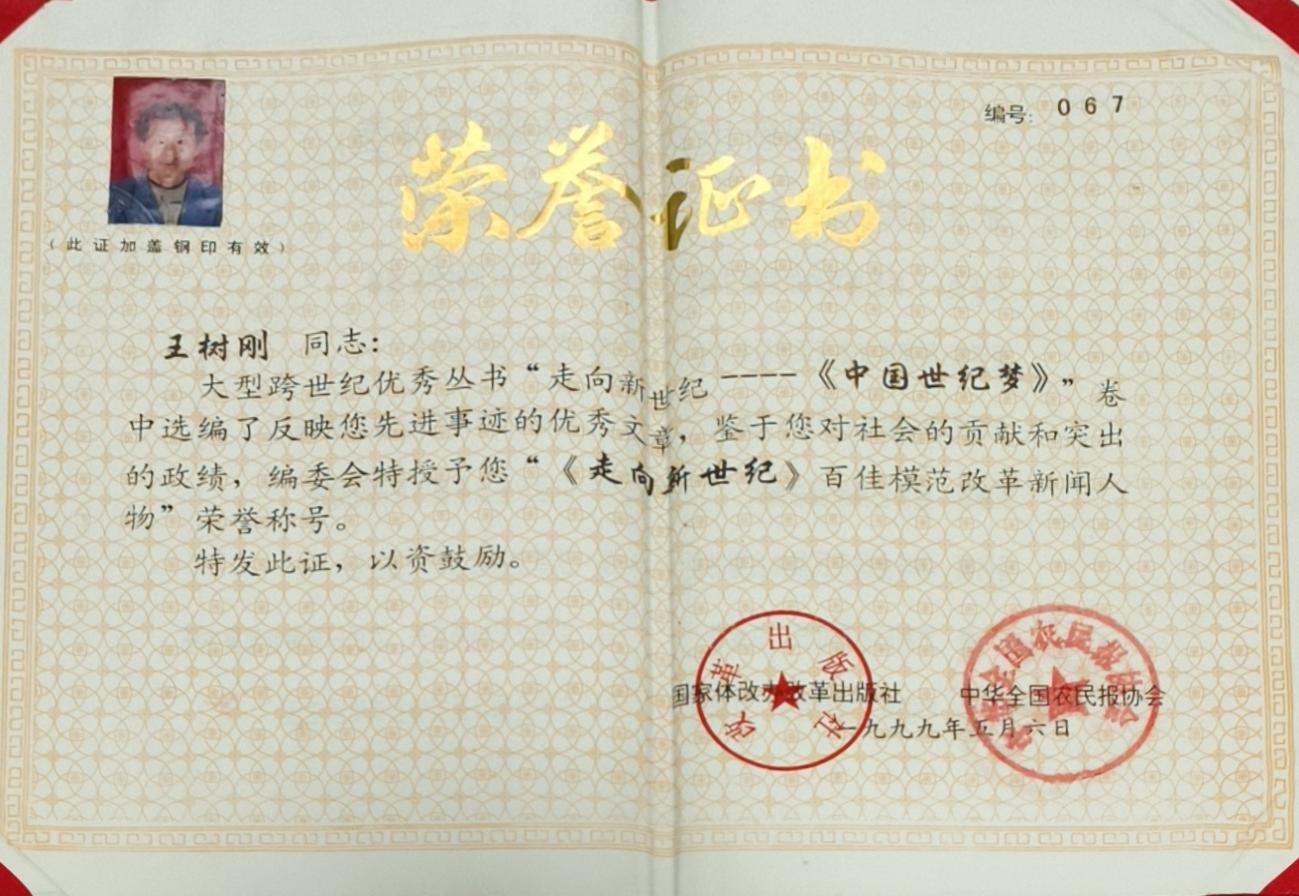 编号: 067
荣誉证书
(此证加盖钢印有效)
王树刚 同志:
大型跨世纪优秀丛书“走向新世纪----《中国世纪梦》”卷
中选编了反映您先进事迹的优秀文章,鉴于您对社会的贡献和突出
的政绩,编委会特授予您“《走向新世纪》百佳模范改革新闻人
物”荣誉称号。
特发此证,以资鼓励。
改革出版社
中华全国农民报协会
国家体改办改革出版社 中华全国农民报协会
一九九九年五月六日